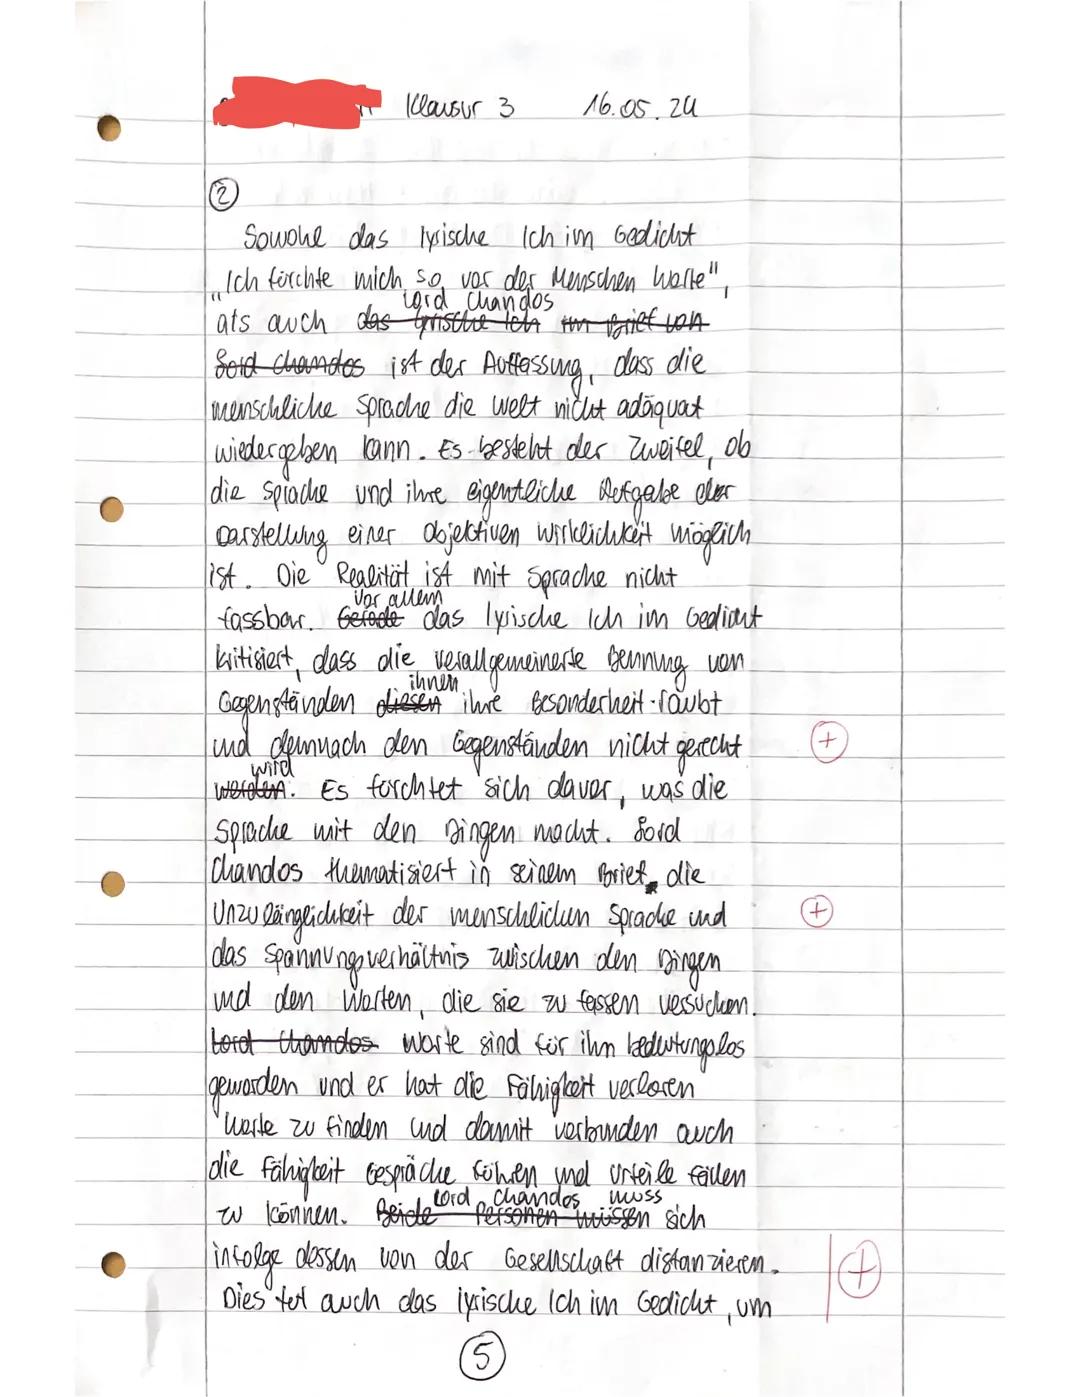 Klausur 3 16.05.24
②
Sowohl das lyrische Ich im Gedicht
„Ich fürchte mich so vor der Menschen Worte",
Lord Chandos
als auch das lyrische Ich im Brief von
Lord Chandos ist der Auffassung, dass die
menschliche Sprache die Welt nicht adäquat
wiedergeben kann. Es besteht der Zweifel, ob
die Sprache und ihre eigentliche Aufgabe der
Darstellung einer objektiven Wirklichkeit möglich
ist. Die Realität ist mit Sprache nicht
vor allem
fassbar. Gerade das lyrische Ich im Gedicht
kritisiert, dass die verallgemeinerte Bennung von
ihnen
Gegenständen diesen ihre Besonderheit raubt
und demnach den Gegenständen nicht gerecht +
wird
werden. Es fürchtet sich davor, was die
Sprache mit den Dingen macht. Lord
Chandos thematisiert in seinem Brief die
Unzulänglichkeit der menschlichen Sprache und +
das Spannungsverhältnis zwischen den Dingen
und den Worten, die sie zu fassen versuchen.
Lord Chandos Worte sind für ihn bedeutungslos
geworden und er hat die Fähigkeit verloren
Worte zu finden und damit verbunden auch
die Fähigkeit Gespräche führen und Urteile fällen
Lord Chandos muss
zu können. Beide Personen müssen sich
infolge dessen von der Gesellschaft distanzieren. +
Dies tut auch das lyrische Ich im Gedicht, um
5